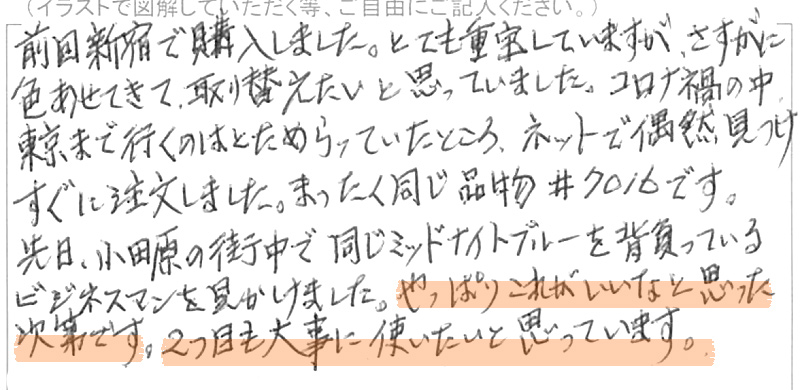 （イラストで図解していただく等、ご自由にご記入ください。）
前回新宿で購入しました。とても重宝していますが、さすがに
色あせてきて、取り替えたいと思っていました。コロナ禍の中、
東京まで行くのはとためらっていたところ、ネットで偶然見つけ
すぐに注文しました。まったく同じ品物#7016です。
先日、小田原の街中で同じミッドナイトブルーを背負っている
ビジネスマンを見かけました。やっぱりこれがいいなと思った
次第です。2つ目も大事に使いたいと思っています。